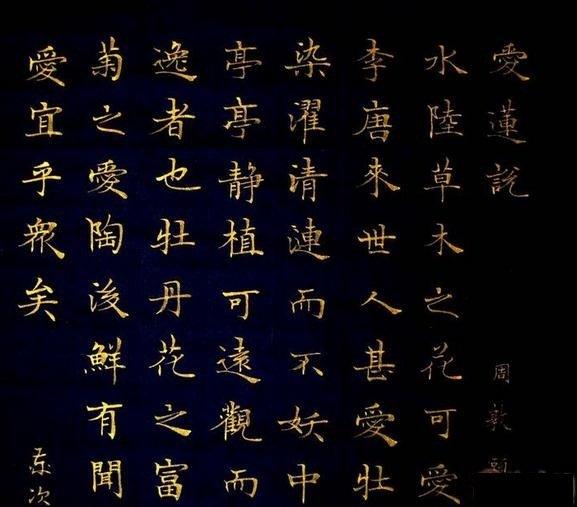 愛蓮說
周敦頤
水陸草木之花可愛
李唐來世人甚愛牡
染濯清漣而不妖中
亭亭静植可遠觀而
逸者也牡丹花之富
菊之愛陶後鮮有聞
愛宜乎眾矣